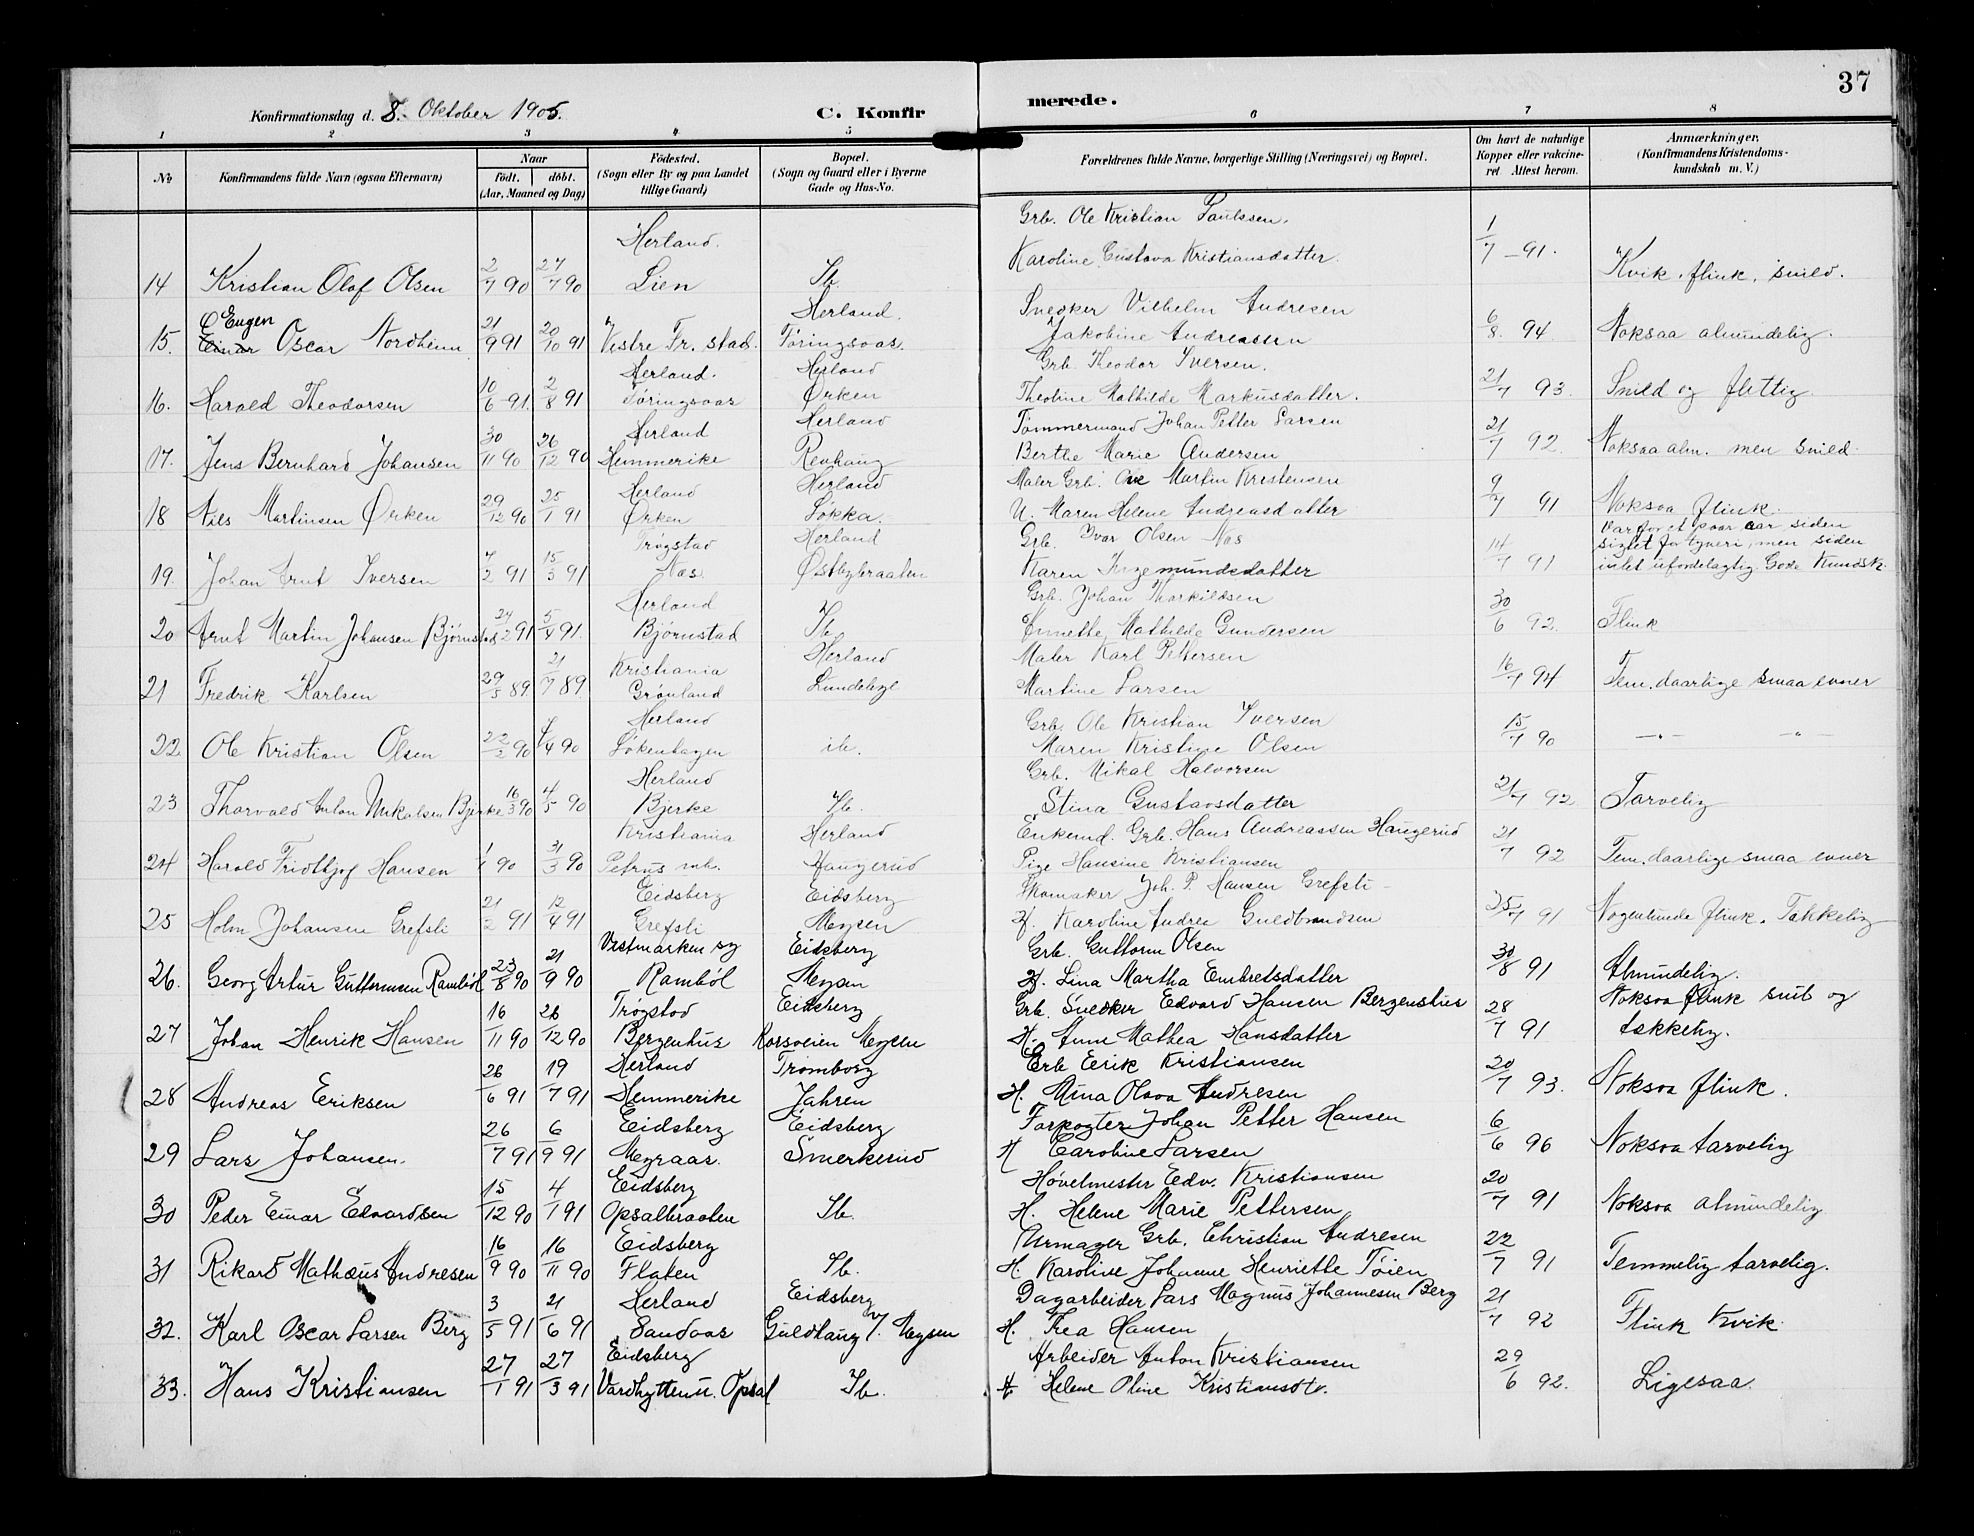 37
Konfirmationsdag d. 8. Oktober 1905.
C. Konfir
merede.
1 2 3 4 5 6 7 8
No
Konfirmandens fulde Navn (ogsaa Efternavn)
Naar
födt. döbt.
(Aar, Maaned og Dag)
Födested.
(Sogn eller By og paa Landet
tillige Gaard)
Bopæl.
(Sogn og Gaard eller i Byerne
Gade og Hus-No.
Forældrenes fulde Navne, borgerlige Stilling (Næringsvei) og Bopæl.
Om havt de naturlige
Kopper eller vakcine-
ret Attest herom.
Anmærkninger,
(Konfirmandens Kristendoms-
kundskab m. V.)
Herland. Grb. Ole Kristian Paulssen.
14 Kristian Olaf Olsen 2/7 90 27/7 90 Lien Ib. Karoline Gustava Kristiansdatter. 1/7 - 91. Kvik, flink, snild.
Eugen Herland. Snedker Vilhelm Andresen
15. Einar Oscar Nordheim 21/9 91 20/10 91 Vestre Fr. stad. Töringsaas. Jakobine Andreassen 6/8. 94 Noksaa almindelig.
Herland. Herland Grb. Theodor Iversen.
16. Harald Theodorsen 10/6 91. 2/8 91 Töringsaas Ørken Theoline Mathilde Markusdatter. 21/7 93. Snild og flittig.
Herland Herland Tømmermand Johan Petter Larsen
17. Jens Bernhard Johansen 30/11 90 26/12 90 Hemmerike Revhaug Berthe Marie Andersen 21/7 92. Noksaa alm. men snild.
Herland Herland Maler Grb. Ole Martin Kristensen
18 Nils Martinsen Ørken 29/12 90 25/1 91 Ørken Løkka. U. Maren Helene Andreasdatter 9/7 91 Noksaa flink.
Trøgstad Herland Grb. Ivar Olsen Næs Var for et paar aar siden
19. Johan Arnt Iversen 7/2 91 15/3 91 Næs. Østbybraaten Karen Ingemundsdatter 14/7 91 sigtet for tyveri, men siden
intet ufordelagtig. Gode Kundsk.
Herland Grb. Johan Thorkildsen
20 Arnt Martin Johansen Bjørnstad 24/2 91 5/4 91. Bjørnstad Ib. Annette Mathilde Gundersen 30/6 92. Flink
Kristiania Herland Maler Karl Pettersen
21 Fredrik Karlsen 29/5 89. 21/7 89. Grønland Lundeleye Martine Larsen 16/7 94 Tem. daarlige smaa evner
Herland Grb. Ole Kristian Iversen
22. Ole Kristian Olsen 22/2 90 4/4 90 Løkenhagen ib. Maren Kristine Olsen 15/7 90 -"- -"-
Herland Grb. Mikal Halvorsen
23 Thorvald Anton Mikalsen Bjerke 16/3 90 4/5 90 Bjerke Ib. Stina Gustavsdatter 21/7 92. Tarvelig
Kristiania Herland Enkemd. Grb. Hans Andreassen Haugerud
24 Harald Fridthjof Hansen 1/1 90 31/3 90 Petrus mh. Haugerud Pige Hansine Kristiansen 21/7 92 Tem. daarlige smaa evner
Eidsberg Eidsberg Skomaker Joh. P. Hansen Grefsli
25 Holm Johansen Grefsli 21/2 91 12/4 91 Grefsli Mysen H. Karoline Andrea Guldbrandsen 25/7 91 Nogenlunde flink. Tækkelig
Vestmarken sg Eidsberg Grb. Guttorm Olsen
26. Georg Artur Guttormsen Ramböl 23/8 90 21/9 90 Ramböl Mysen H. Lina Martha Embretsdatter 30/8 91 Almindelig.
Trøgstad Eidsberg Grb. Snedker Edvard Hansen Bergenhus Noksaa flink snil og
27 Johan Henrik Hansen 16/11 90 26/12 90 Bergenhus Korsveien Mysen H. Anne Mathea Hansdatter 28/7 91 tækkelig.
Herland Trømborg Grb Eerik Kristiansen
28 Andreas Eriksen 26/6 91 19/7 91 Hemmerike Jahren H. Mina Olava Andresen 20/7 93. Noksaa flink.
Eidsberg Eidsberg Forpagter Johan Petter Hansen
29 Lars Johansen. 26/7 91 6/9 91 Myraas. Smerkerud H Caroline Larsen 6/6 96 Noksaa tarvelig
Eidsberg Høvelmester Edv. Kristiansen
30 Peder Einar Edvardsen 15/12 90 4/1 91 Opsalbraaten Ib. H. Helene Marie Pettersen 20/7 91 Noksaa almindelig
Eidsberg Urmager Grb. Christian Andresen
31 Rikard Mathæus Andresen 16/9 90 16/11 90 Flaten Ib. H. Karoline Johanne Henriette Tøien 22/7 91 Temmelig tarvelig.
Herland Eidsberg Dagarbeider Lars Magnus Johannesen Berg
32. Karl Oscar Larsen Berg 3/5 91 21/6 91 Sandaas Guldhaug v/. Mysen H. Thea Hansen 21/7 92 Flink kvik.
Eidsberg Arbeider Anton Kristiansen
33. Hans Kristiansen 27/1 91 27/3 91 Vardhytten u. Opsal Ib. H Helene Oline Kristiansdtr. 29/6 92. Ligesaa.